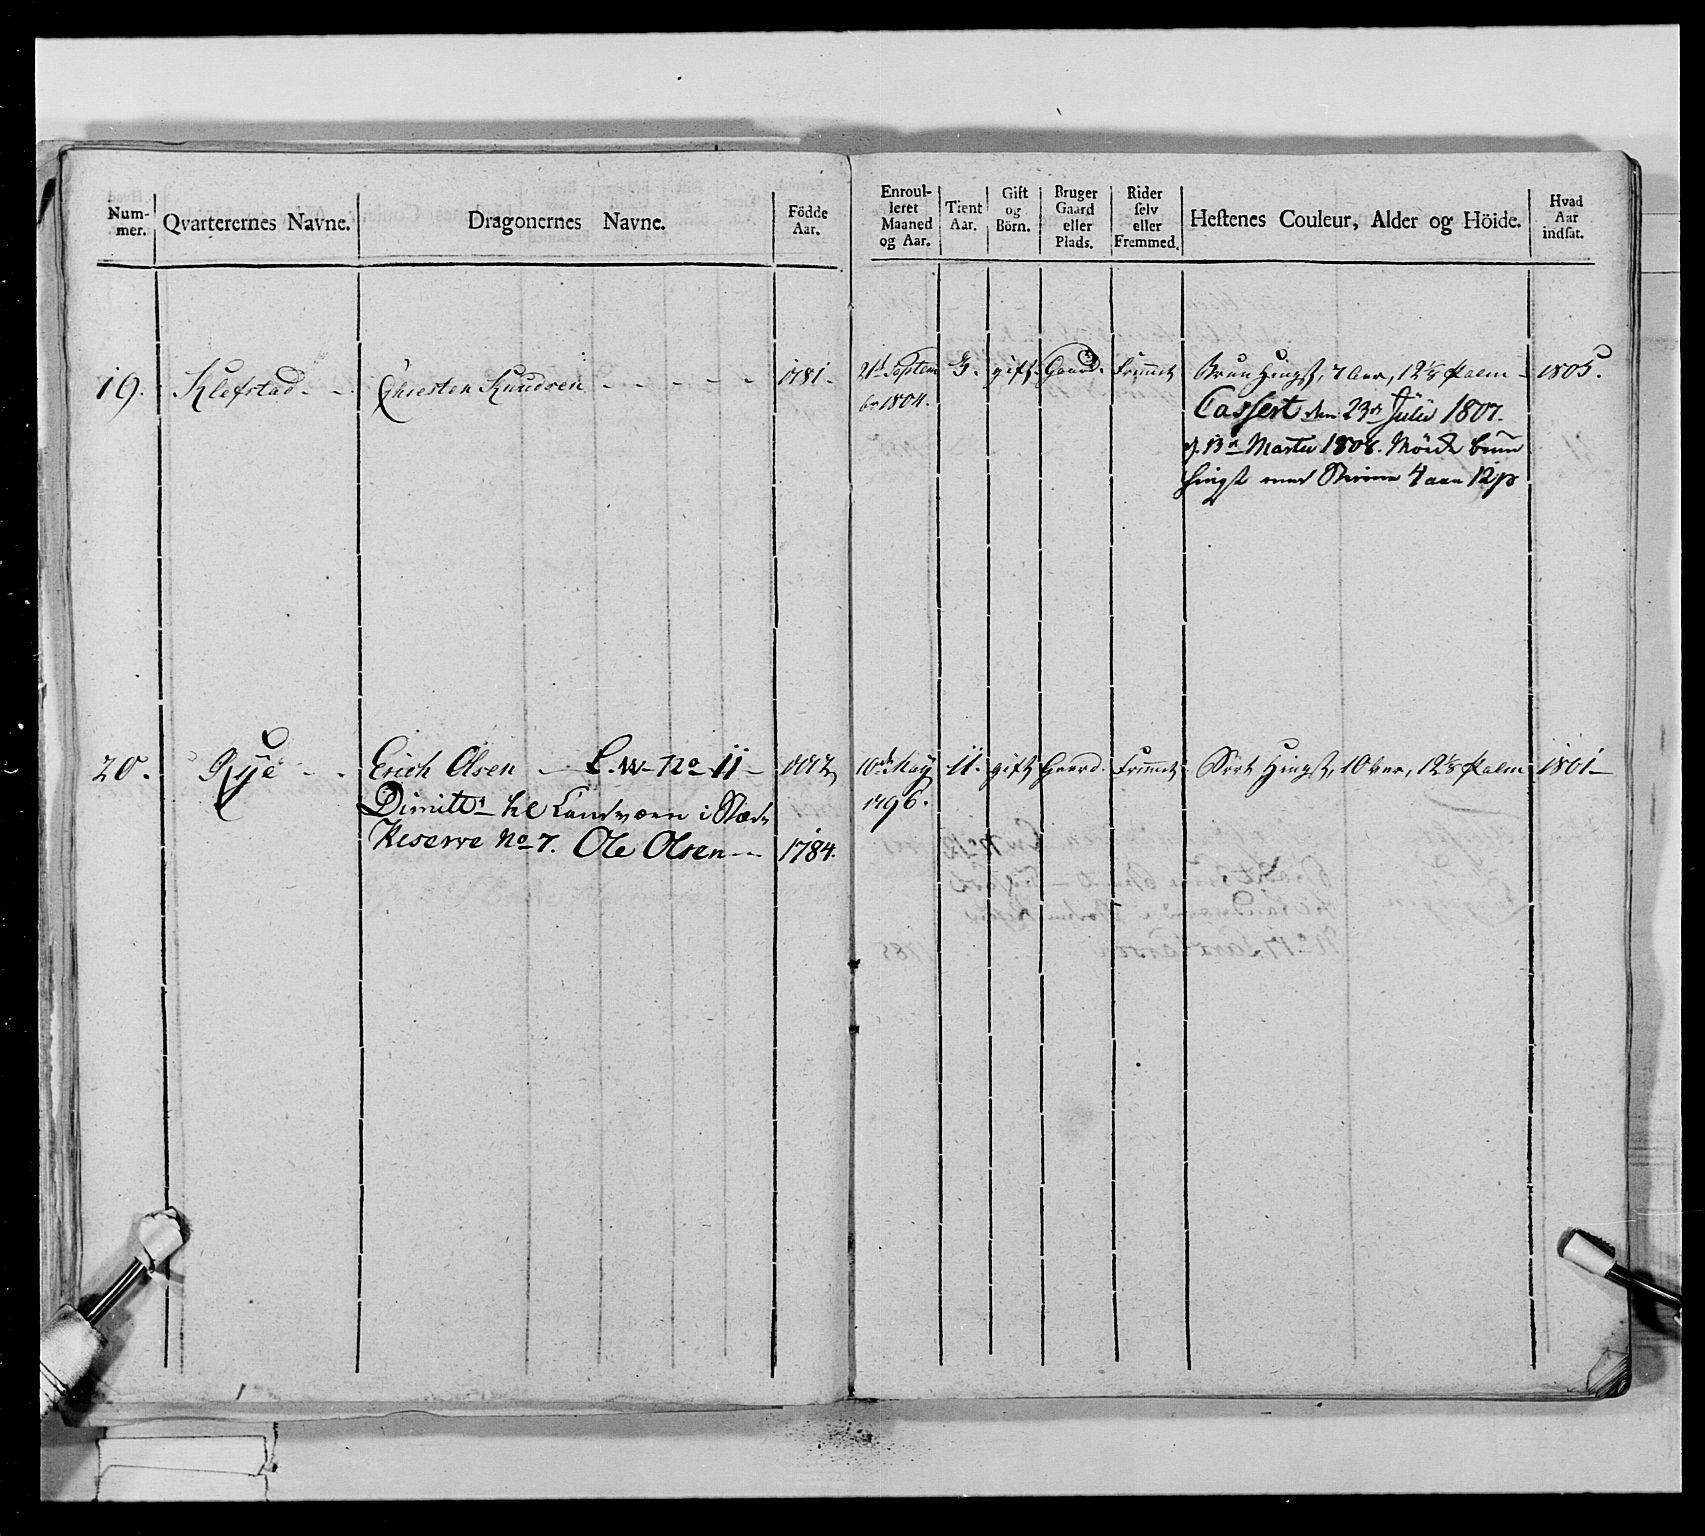 Num-
mer.
Qvarterernes Navne.
Dragonernes Navne.
Födde
Aar.
Enroul-
leret
Maaned
og Aar.
Tient
Aar.
Gift
og
Börn.
Bruger
Gaard
eller
Plads.
Rider
selv
eller
Fremmed.
Hestenes Couleur, Alder og Höide.
Hvad
Aar
indsat.
19. Klefstad. - - Christen Knudsen - - - - - 1781. 21de Septem 3. gift. Gaard. Frimmet Bruun Hingst, 7 Aar, 12 1/8 Palm - 1805.
br 1804. Cassert den 23de Julii 1807.
d. 13de Martii 1808. Mörk bruun
Hingst med Stierne 4 aar 12 p
20. Rye - - Erich Olsen - L. W. No 11 - 1772 10de May 11. gift Gaard. Frimmet Sort Hingst, 10 Aar, 12 1/8 Palm 1801 -
Dimitt. til Landværn i Stæden 1796.
Reserve No 7. Ole Olsen - - 1784.